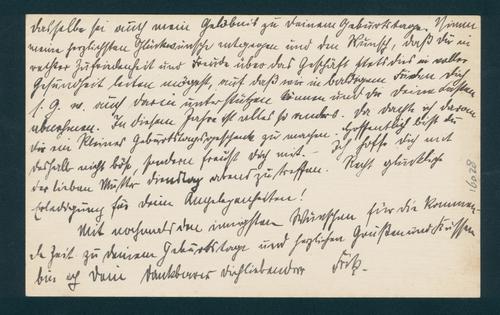 dasselbe sei auch mein Gelöbnis zu Deinem Geburtstage. Nimm
meine herzlichsten Glückwünsche entgegen und den Wunsch, daß Du in
rechter Zufriedenheit und Freude über das Geschäft stets dies in voller
Gesundheit leiten mögest, und daß wir in baldigem Frieden Dich
s. G. w. auch darin unterstützen können und Dir Deine Lasten
abnehmen. In diesem Jahre ist alles so anders. Da dachte ich daran
Dir ein kleines Geburtstagsgeschenk zu machen. Hoffentlich bist Du
deshalb nicht böse, sondern freust Dich mit. – Ich hoffe Dich mit
der lieben Mutter Dienstag abend zu treffen. Recht glückliche
Erledigung für Deine Angelegenheiten!
Mit nochmals den innigsten Wünschen für die kommen-
de Zeit zu Deinem Geburtstage und herzlichen Grüßen und Küssen
bin ich Dein dankbarer Dichliebender Fritz.